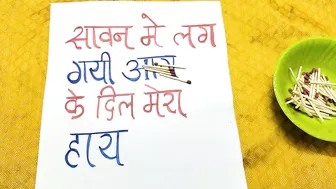 सावन मे लग
गयी आग
के दिल मेरा
हाय